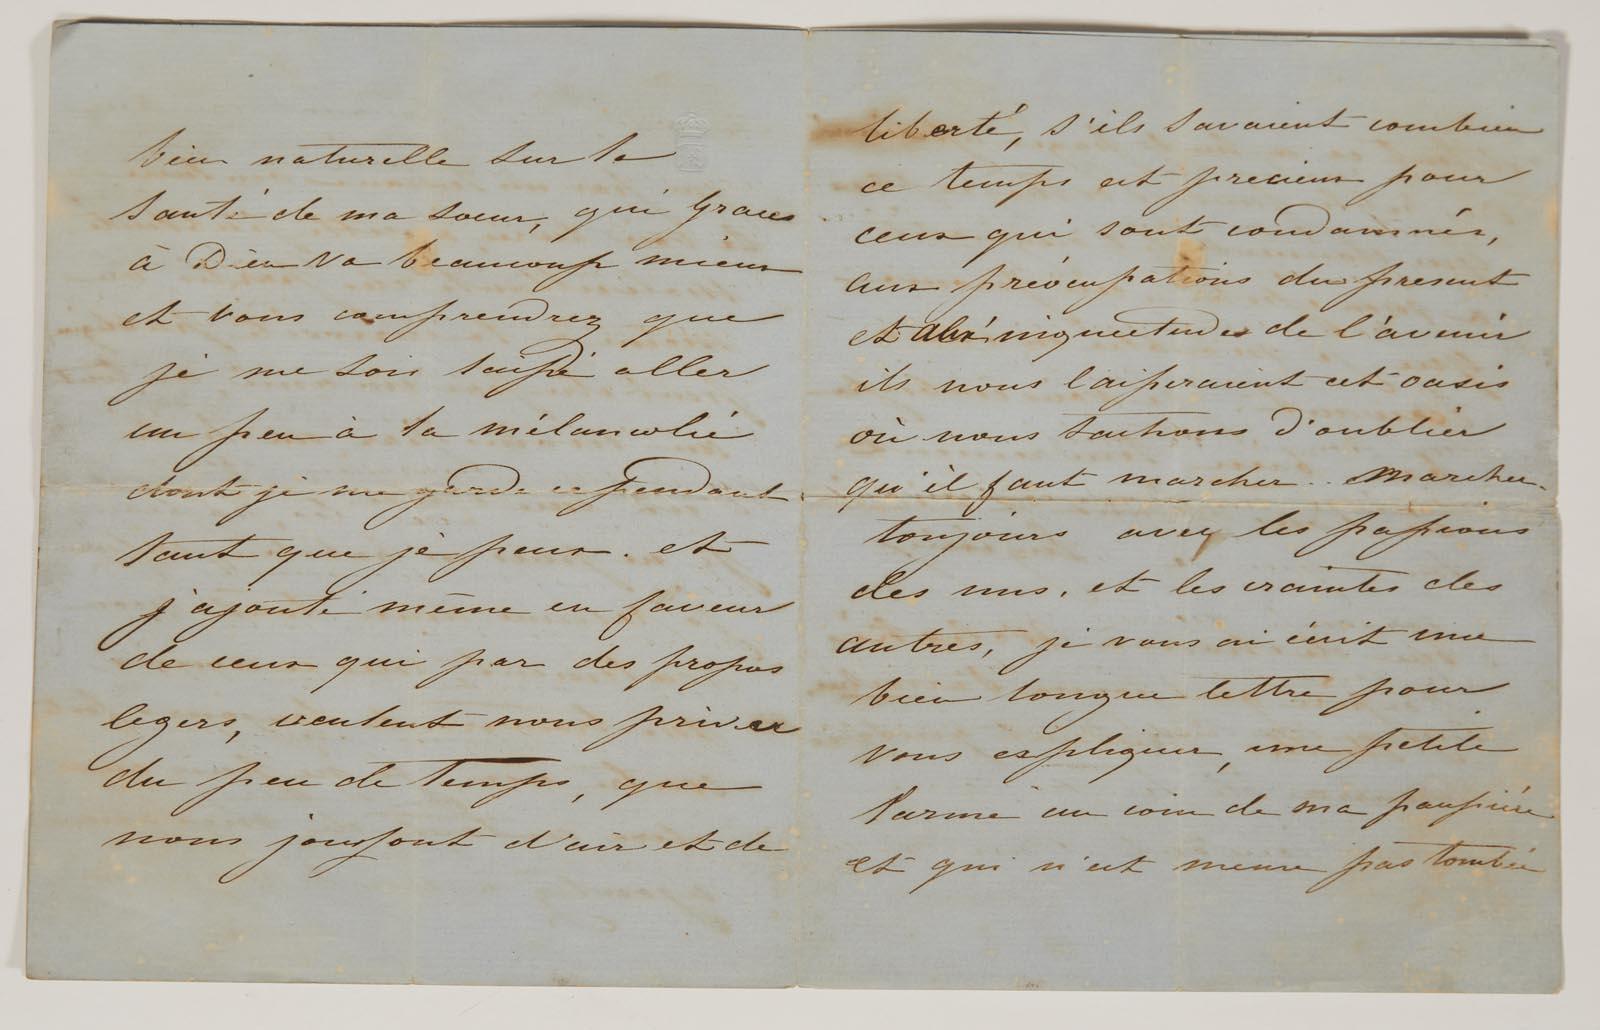 bien naturelle sur la
santé de ma soeur, qui graces
à Dieu va beaucoup mieux
et vous comprendrez que
je me sois laissé aller
un peu à la mélancolie
dont je me garde cependant
tant que je peux. et
j'ajoute même en faveur
de ceux qui par des propos
legers, veulent nous priver
du peu de temps, que
nous d'air et de
liberté, s'ils savaient combien
ce temps est precieux pour
ceux qui sont condamnés,
aux préocupations du present
et inquietudes de l'avenir
ils nous laisseraient cet oasis
où nous tachons d'oublier
qu'il faut marcher.. Marcher.
toujours avec les passions
des uns, et les craintes des
autres, je vous ai écrit une
bien longue lettre pour
vous expliquer, une petite
larme au coin de ma paupière
et qui n'est meme pas tombée